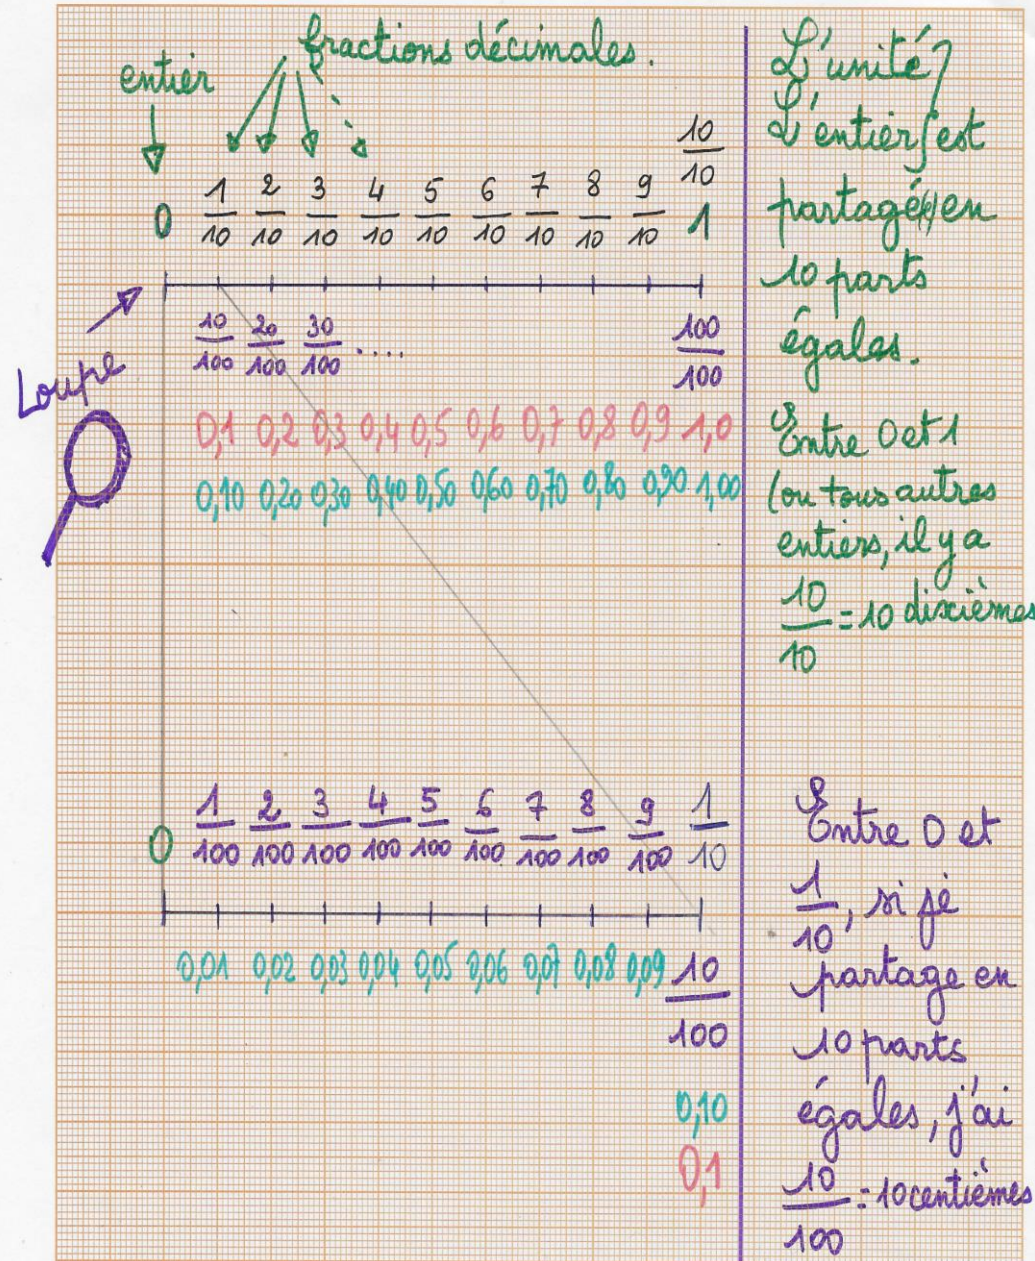 fractions décimales.
entier
10/10
0 1/10 2/10 3/10 4/10 5/10 6/10 7/10 8/10 9/10 1
10/100 20/100 30/100 .... 100/100
Loupe
0,1 0,2 0,3 0,4 0,5 0,6 0,7 0,8 0,9 1,0
0,10 0,20 0,30 0,40 0,50 0,60 0,70 0,80 0,90 1,00
0 1/100 2/100 3/100 4/100 5/100 6/100 7/100 8/100 9/100 1/10
0,01 0,02 0,03 0,04 0,05 0,06 0,07 0,08 0,09 10/100
0,10
0,1
L'unité
L'entier est
partagé(e) en
10 parts
égales.
Entre 0 et 1
(ou tous autres
entiers, il y a
10/10 = 10 dixièmes
Entre 0 et
1/10, si je
partage en
10 parts
égales, j'ai
10/100 = 10 centièmes